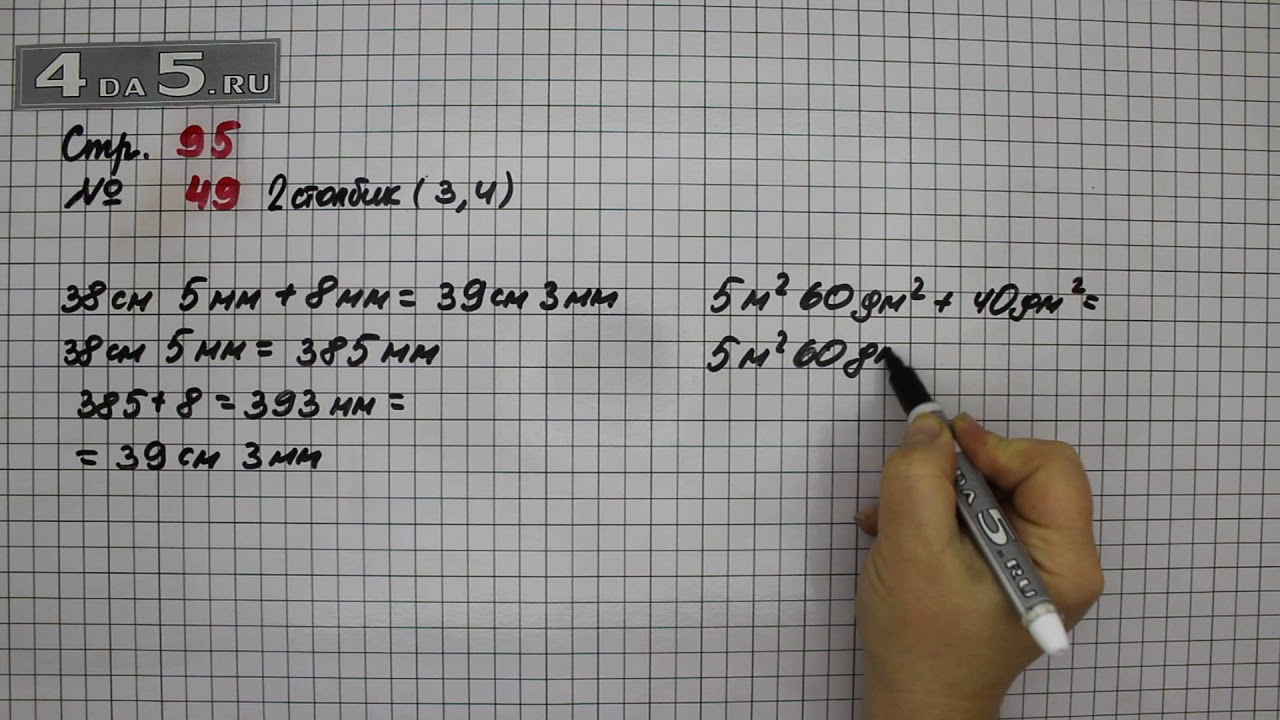 4 DA 5.RU
Стр. 95
№ 49 2 столбик (3,4)
38 см 5 мм + 8 мм = 39 см 3 мм
38 см 5 мм = 385 мм
385 + 8 = 393 мм =
= 39 см 3 мм
5 м² 60 дм² + 40 дм² =
5 м² 60 дм
DA 5.RU